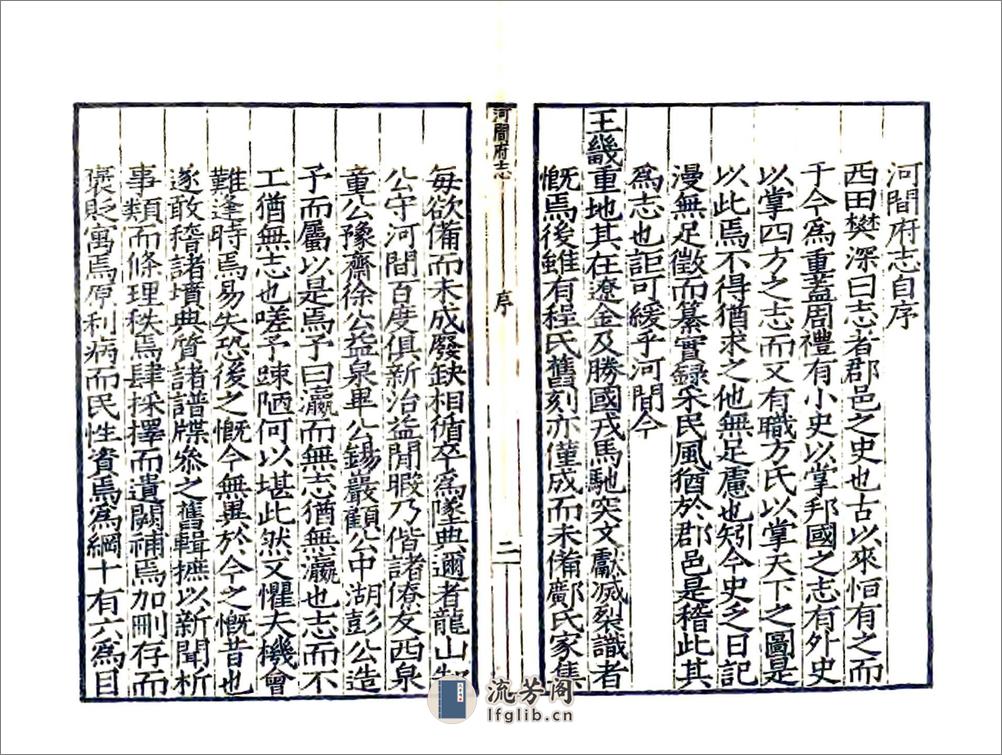 河間府志自序
西田樊深曰志者郡邑之史也古以來恒有之而
于今為重蓋周禮有小史以掌邦國之志有外史
以掌四方之志而又有職方氏以掌天下之圖是
以此焉不得猶求之他無足慮也矧今史乏日記
漫無足徵而纂實録采民風猶於郡邑是稽此其
為志也詎可緩乎河間今
王畿重地其在遼金及勝國戎馬馳突文獻滅裂識者
慨焉後雖有程氏舊刻亦僅成而未備鄺氏家集
河間府志
序
二
每欲備而未成廢缺相循卒為墜典邇者龍山郜
公守河間百度俱新治益閒暇乃偕諸僚友西泉
童公豫齋徐公益泉畢公錫巖顧公中湖彭公造
予而屬以是焉予曰瀛而無志猶無瀛也志而不
工猶無志也嗟予踈陋何以堪此然又懼夫機會
難逢時焉易失恐後之慨今無異於今之慨昔也
遂敢稽諸墳典質諸譜牒參之舊輯摭以新聞析
事類而條理秩焉肆採擇而遺闕補焉加刪存而
褒貶寓焉原利病而民性資焉為綱十有六為目
流芳阁
lfglib.cn